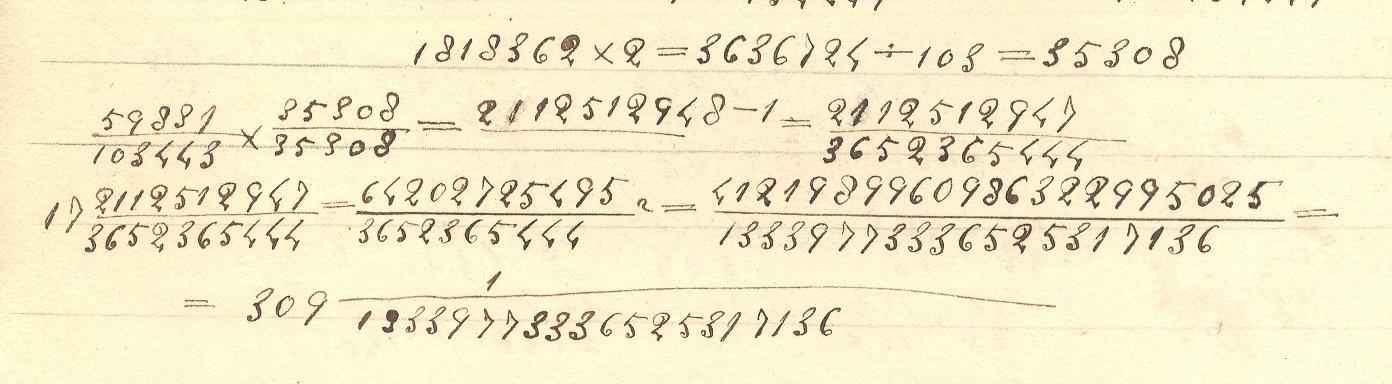 1818362×2=3636724÷103=35308
59831/103443 × 35308/35308 = 2112512948−1 = 2112512947/3652365444
17 2112512947/3652365444 = 64202725495/3652365444 ² = 4121989960986322995025/13339773336525317136 =
= 309 1/13339773336525317136